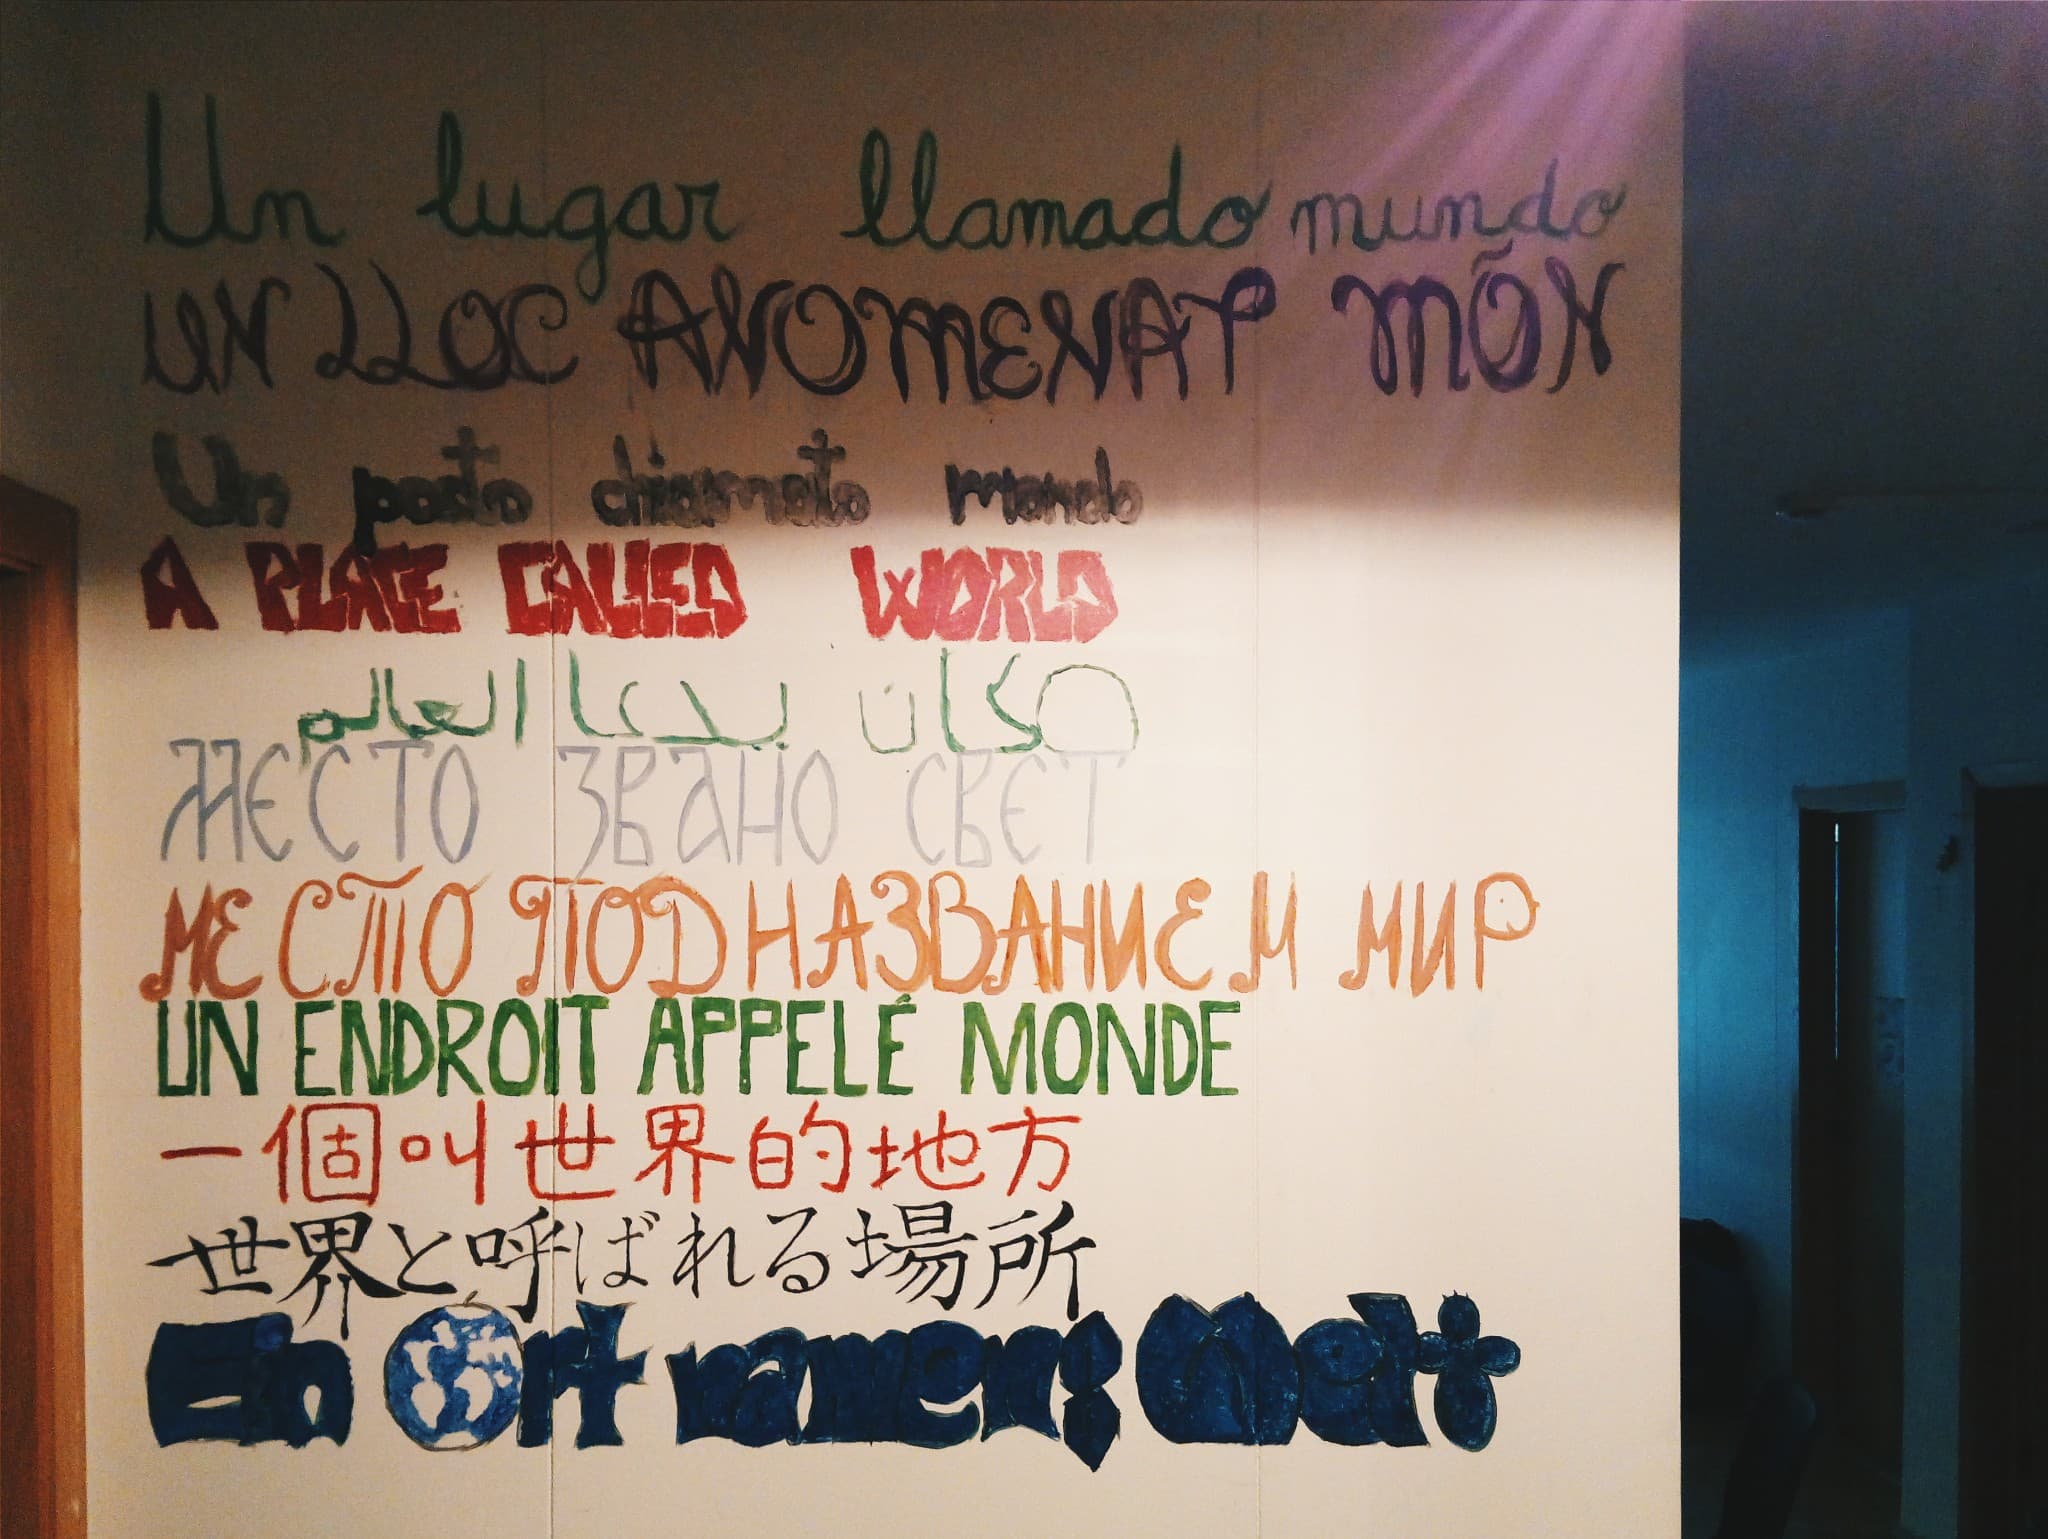 Un lugar llamado mundo
UN LLOC ANOMENAT MÕN
Un posto chiamato mondo
A PLACE CALLED WORLD
مكان يدعا العالم
МЕСТО ЗВАНО СВЕТ
МЕСТО ПОД НАЗВАНИЕМ МИР
UN ENDROIT APPELÉ MONDE
一個叫世界的地方
世界と呼ばれる場所
Ein Ort namens Welt